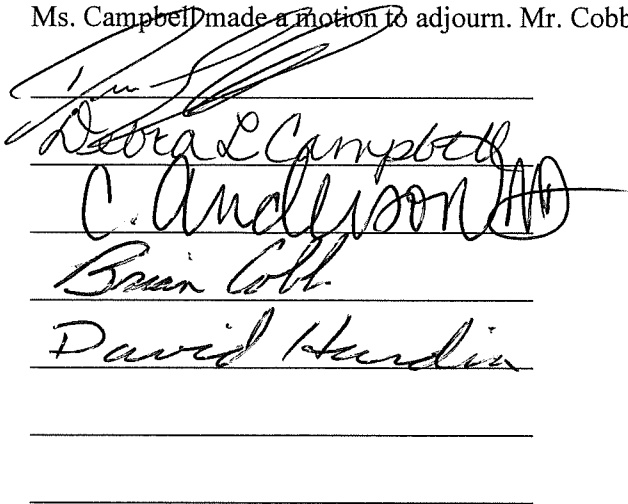 Ms. Campbell made a motion to adjourn. Mr. Cobb
Debra L Campbell
C. Anderson MD
Brian Cobb
David Hardin